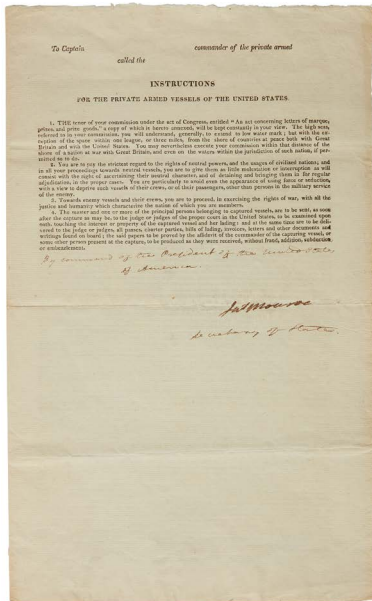 To Captain commander of the private armed
called the
INSTRUCTIONS
FOR THE PRIVATE ARMED VESSELS OF THE UNITED STATES.
1. THE tenor of your commission under the act of Congress, entitled "An act concerning letters of marque,
prizes, and prize goods," a copy of which is hereto annexed, will be kept constantly in your view. The high seas,
referred to in your commission, you will understand, generally, to extend to low water mark; but with the ex-
ception of the space within one league, or three miles, from the shore of countries at peace both with Great
Britain and with the United States. You may nevertheless execute your commission within that distance of the
shore of a nation at war with Great Britain, and even on the waters within the jurisdiction of such nation, if per-
mitted so to do.
2. You are to pay the strictest regard to the rights of neutral powers, and the usages of civilized nations; and
in all your proceedings towards neutral vessels, you are to give them as little molestation or interruption as will
consist with the right of ascertaining their neutral character, and of detaining and bringing them in for regular
adjudication, in the proper cases. You are particularly to avoid even the appearance of using force or seduction,
with a view to deprive such vessels of their crews, or of their passengers, other than persons in the military service
of the enemy.
3. Towards enemy vessels and their crews, you are to proceed, in exercising the rights of war, with all the
justice and humanity which characterize the nation of which you are members.
4. The master and one or more of the principal persons belonging to captured vessels, are to be sent, as soon
after the capture as may be, to the judge or judges of the proper court in the United States, to be examined upon
oath, touching the interest or property of the captured vessel and her lading: and at the same time are to be deli-
vered to the judge or judges, all passes, charter parties, bills of lading, invoices, letters and other documents and
writings found on board; the said papers to be proved by the affidavit of the commander of the capturing vessel, or
some other person present at the capture, to be produced as they were received, without fraud, addition, subduction
or embezzlement.
By command of the President of the United States
of America.
Jas Monroe
Secretary of State.